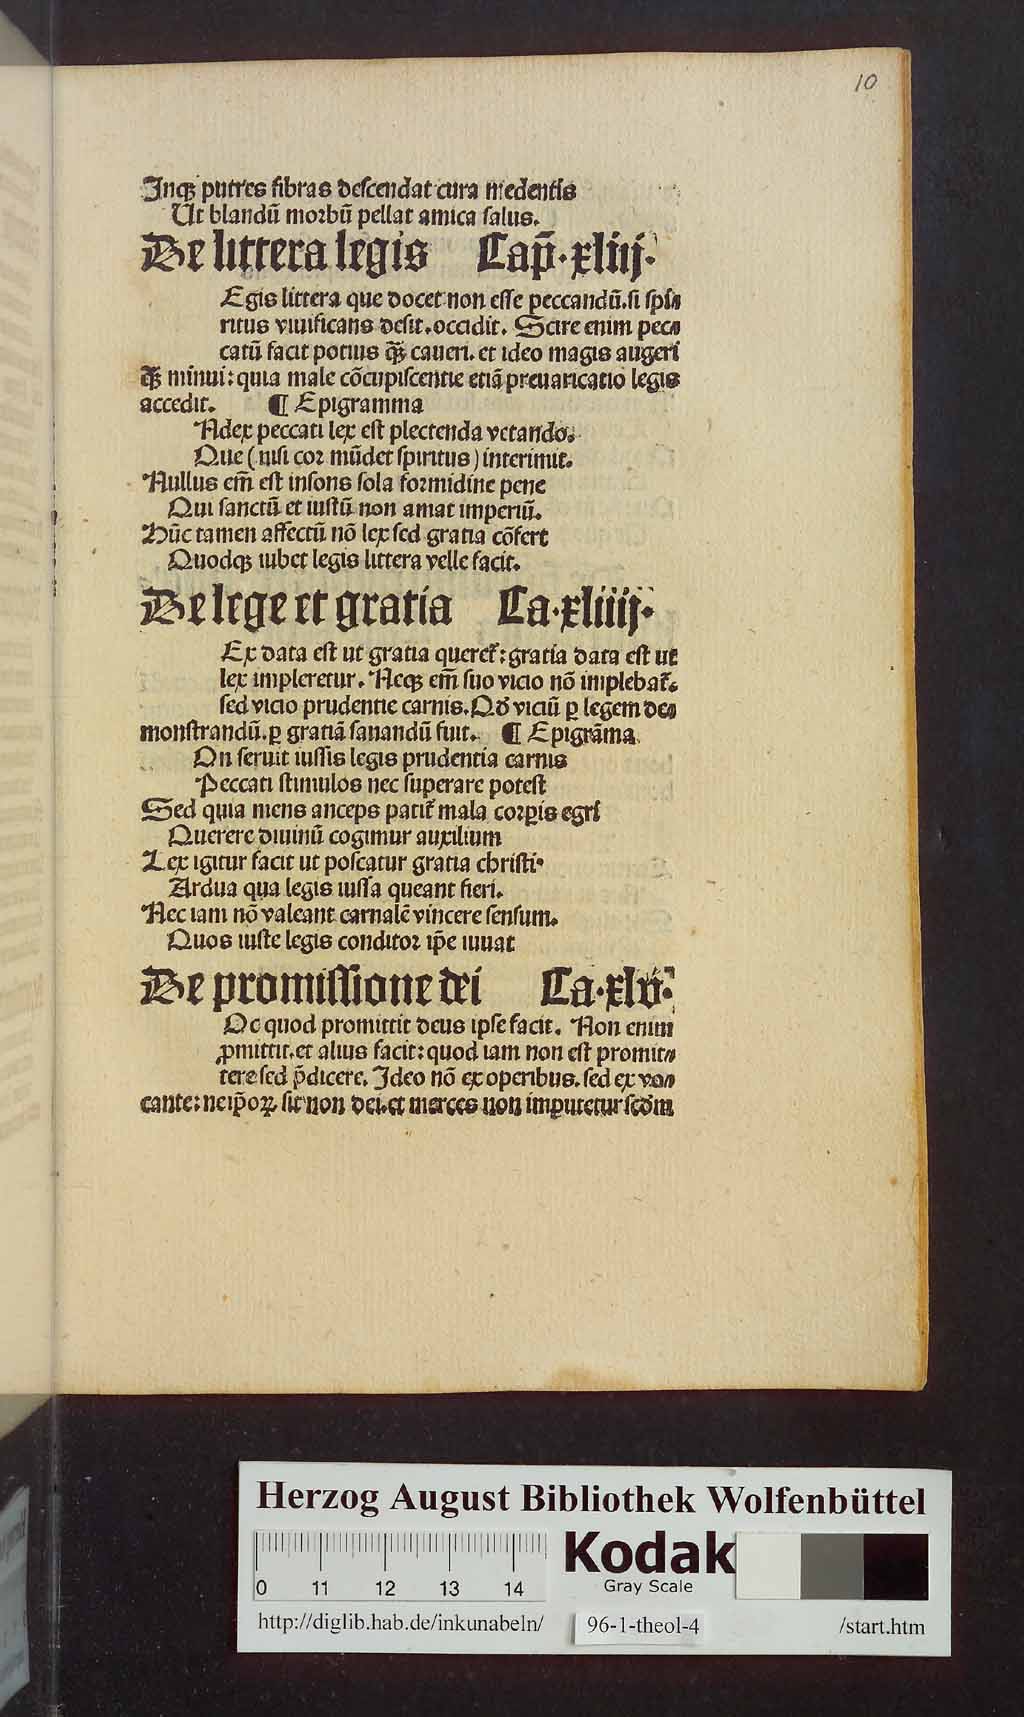 10
Inqꝫ putres fibras descendat cura medentis
Ut blandū morbū pellat amica salus.
De littera legis Cap̄. xliij.
Egis littera que docet non esse peccandū. si spi⸗
ritus viuificans desit. occidit. Scire enim pec⸗
catū facit potius q̄ꝫ caueri. et ideo magis augeri
q̄ꝫ minui: quia male cōcupiscentie etiā preuaricatio legis
accedit. ¶ Epigramma
Adex peccati lex est plectenda vetando.
Que (nisi cor mūdet spiritus) interimit.
Nullus em̄ est insons sola formidine pene
Qui sanctū et iustū non amat imperiū.
Hūc tamen affectū nō lex sed gratia cōfert
Quodqꝫ iubet legis littera velle facit.
De lege et gratia Ca. xliiij.
Ex data est ut gratia queret᷑: gratia data est ut
lex impleretur. Neqꝫ em̄ suo vicio nō implebat᷑.
sed vicio prudentie carnis. Qd̄ viciū ꝑ legem de⸗
monstrandū. ꝑ gratiā sanandū fuit. ¶ Epigrāma
On seruit iussis legis prudentia carnis
Peccati stimulos nec superare potest
Sed quia mens anceps patit᷑ mala corꝑis egri
Querere diuinū cogimur auxilium
Lex igitur facit ut poscatur gratia christi.
Ardua qua legis iussa queant fieri.
Nec iam nō valeant carnalē vincere sensum.
Quos iuste legis conditor ip̄e iuuat
De promissione dei Ca. xlv.
Oc quod promittit deus ipse facit. Non enim
ꝓmittit. et alius facit: quod iam non est promit⸗
tere sed p̄dicere. Ideo nō ex operibus. sed ex vo⸗
cante: ne ip̄oꝝ sit non dei. et merces non imputetur scd̄m
Herzog August Bibliothek Wolfenbüttel
0 11 12 13 14
Kodak
Gray Scale
http://diglib.hab.de/inkunabeln/ 96-1-theol-4 /start.htm